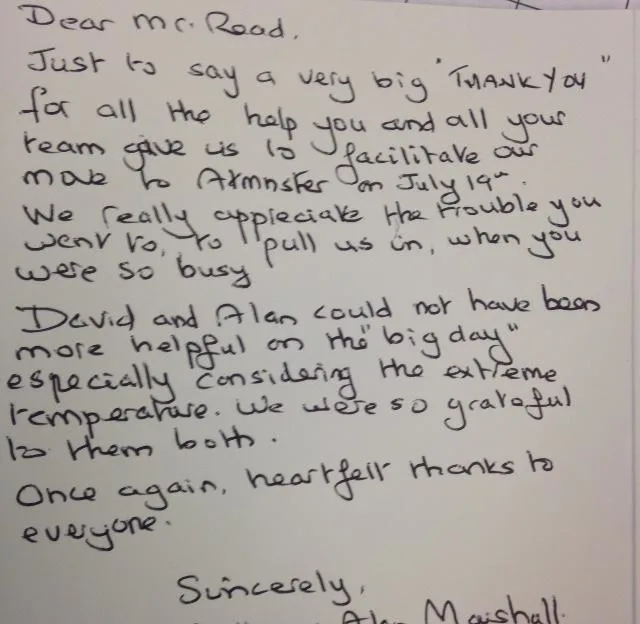 Dear Mr. Read,
Just to say a very big "THANK YOU"
for all the help you and all your
team gave us to facilitate our
move to Axminster on July 19th.
We really appieciate the trouble you
went to, to pull us in, when you
were so busy
David and Alan could not have been
more helpful on the "big day"
especially considering the extreme
temperature. We were so grateful
to them both.
Once again, heartfelt thanks to
everyone.
Sincerely,
Alan Marshall.